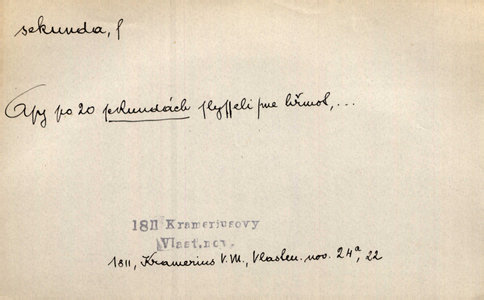 sekunda, f
Asy po 20 sekundách slysseli sme hřmot, ...
1811 Krameriusovy
Vlast.nov.
1811, Kramerius V. M., Vlasten. nov. 24a, 22